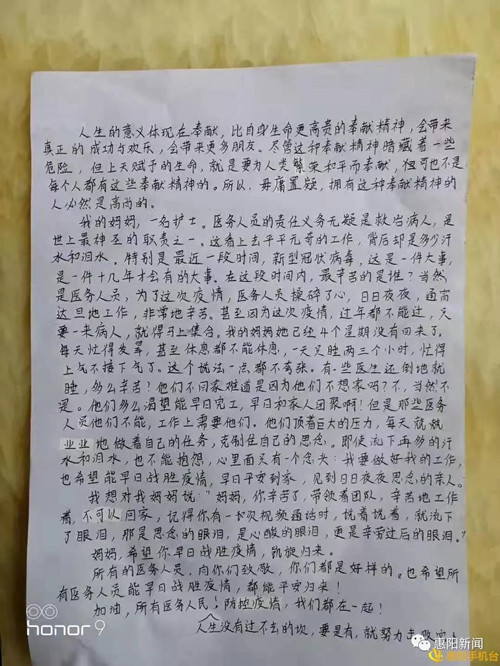 人生的意义体现在奉献，比自身生命更高贵的奉献精神，会带来
真正的成功与欢乐，会带来更多朋友。尽管这种奉献精神暗藏着一些
危险，但上天赋予的生命，就是要为人类繁荣和平而奉献，但可也不是
每个人都有这些奉献精神的。所以，毋庸置疑，拥有这种奉献精神的
人必然是高尚的。
我的妈妈，一名护士。医务人员的责任义务无疑是救治病人，是
世上最神圣的职责之一。这看上去平平凡奇的工作，背后却是多少汗
水和泪水。特别是最近一段时间，新型冠状病毒，这是一件大事，
是一件十几年才会有的大事。在这段时间内，最辛苦的是谁？当然
是医务人员，为了这次疫情，医务人员操碎了心，日日夜夜，通宵
达旦地工作，非常地辛苦。甚至因为这次疫情，过年都不能过，只
要一来病人，就得马上集合。我的妈妈她已经4个星期没有回来了。
每天忙得发晕，甚至休息都不能休息，一天只睡两三个小时，忙得
上气不接下气了。这个说法一点都不夸张。有一些医生还倒地就
睡，多么辛苦！他们不回家难道是因为他们不想家吗？不，当然不
是。他们多么渴望能早日完工，早日和家人团聚啊！但是那些医务
人员他们不能，工作上需要他们。他们顶着巨大的压力，每天就兢
业业地做着自己的任务，克制住自己的思念。即使流下再多的汗
水和泪水，也不能抱怨，心里面只有一个念头：我要做好我的工作，
也希望能早日战胜疫情，早日平安到家，见到日日夜夜思念的亲人。
我想对我妈妈说："妈妈，你辛苦了，带领着团队，辛苦地工作
着，不可以回家，记得你有一次视频通话时，说着说着，就流下
了眼泪，那是思念的眼泪，是心酸的眼泪，更是辛劳过后的眼泪。"
妈妈，希望你早日战胜疫情，凯旋归来。
所有的医务人员，向你们致敬，你们都是好样的。也希望所
有医务人员能早日战胜疫情，都能平安归来！
加油，所有医务人民！防控疫情，我们都在一起！
人生没有过不去的坎，要是有，就努力去
honor 9
惠阳新闻